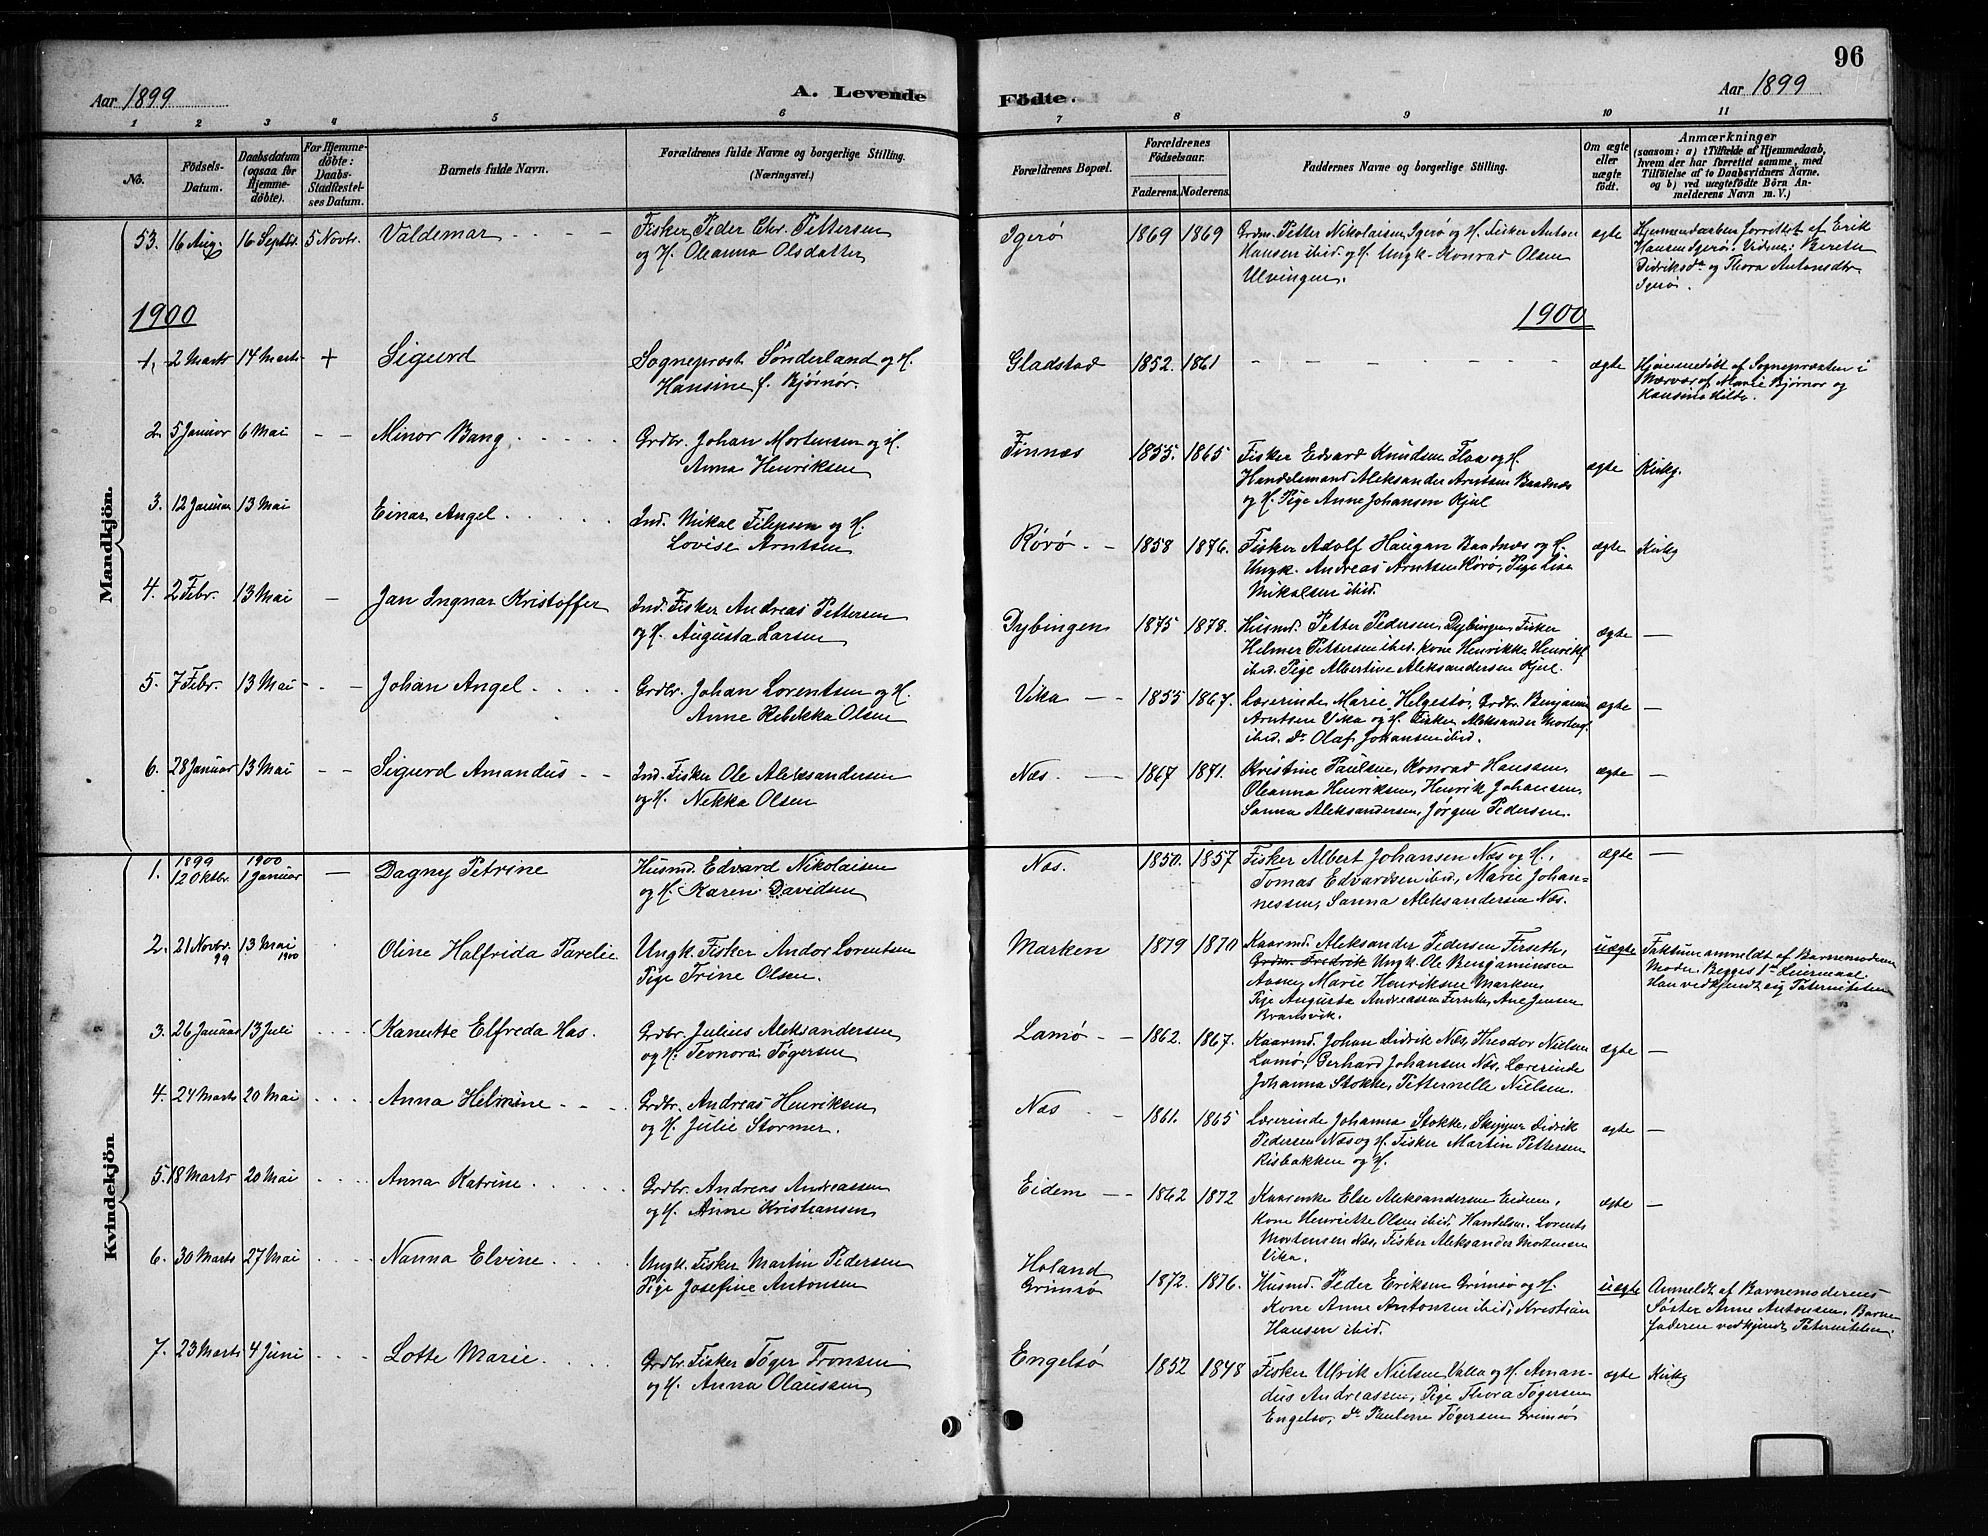 96
Aar 1899
A. Levende
Födte.
Aar 1899
1 2 3 4 5 6 7 8 9 10 11
No.
Födsels-Datum.
Daabsdatum (ogsaa for Hjemmedöbte).
For Hjemmedöbte: Daabs-Stadfæstelses Datum.
Barnets fulde Navn.
Forældrenes fulde Navne og borgerlige Stilling.
(Næringsvei.)
Forældrenes Bopæl.
Forældrenes Födselsaar.
Faderens. Moderens.
Faddernes Navne og borgerlige Stilling.
Om ægte eller uægte födt.
Anmærkninger
(saasom: a) i Tilfælde af Hjemmedaab, hvem der har forrettet samme, med Tilföielse af to Daabsvidners Navne. og b) ved uægtefödte Börn Anmelderens Navn m. V.)
53. 16 Aug. 16 Septbr. 5 Novbr. Valdemar
Fisker Peder Chr. Pettersen
og H. Oleanna Olsdatter
Igerö 1869 1869
Grdm. Petter Nikolaisen Igerö og H. Fisker Anton
Hansen ibid. og H. Ungk. Konrad Olsen
Ulvingen.
ægte
Hjemmedaaben forrettet af Erik
Hansen Igerö. Vidner: Berete
Didriksdr. og Thora Antonsdtr.
Igerö.
1900
1900
Mandkjön.
1. 2 Marts 14 Marts + Sigurd
Sogneprest Sönderland og H.
Hansine f. Bjørnør.
Gladstad 1852. 1861
ægte
Hjemmedöbt af Sognepræsten i
Nærvær af Marie Bjørnør og
2. 5 Januar 6 Mai Minor Bang
Grdbr. Johan Mortensen og H.
Anna Henriksen
Finnæs 1855. 1865
Fisker Edvard Knudsen Floa og H.
Handelsmand Aleksander Arntsen Baadnæs
og H. Pige Anne Johansen Kjul
ægte Kirkg.
3. 12 Januar 13 Mai Einar Angel
Ind. Mikal Filipsen og H.
Lovise Arntsen
Rörö 1858 1876.
Fisker Adolf Haugan Baadnæs og H.
Ungk. Andreas Arntsen Rörö, Pige Lise
Mikalsen ibid.
ægte Kirkg
4. 2 Febr. 13 Mai Jan Ingvar Kristoffer
Ind. Fisker Andreas Pettersen
og H. Augusta Larsen
Dybingen 1875 1878.
Husmd. Petter Pedersen Dybingen, Fisker
Helmer Pettersen ibid. Kone Henrikke Henriks.
ibid. Pige Albertine Aleksandersen Kjul
ægte —
5. 7 Febr. 13 Mai Johan Angel
Grdbr. Johan Lorentsen og H.
Anne Rebekka Olsen
Vika 1855 1867.
Lærerinde Marie Helgestø, Grdbr. Benjamin
Arntsen Vika og H. Fisker Aleksander Mortens.
ibid. Do Olaf Johansen ibid.
ægte —
6. 28 Januar 13 Mai Sigurd Amandus
Ind. Fisker Ole Aleksandersen
og H. Nekka Olsen
Næs. 1867 1871.
Kristine Paulsen, Konrad Hanssen,
Oleanna Henriksen, Henrik Johansen,
Sanna Aleksandersen, Jörgen Pedersen.
ægte —
Kvindekjön.
1. 1899 12 Oktbr. 1900 1 Januar Dagny Petrine
Husmd. Edvard Nikolaisen
og H. Karen Davidsen
Næs. 1850. 1857
Fisker Albert Johansen Næs og H.,
Tomas Edvardsen ibid., Marie Johan-
nessen, Sanna Aleksandersen Næs.
ægte —
2. 21 Novbr. 99 13 Mai 1900 Oline Halfrida Parelie
Ungk. Fisker Andor Lorentsen
Pige Trine Olsen.
Marken 1879 1870
Kaarmd. Aleksander Pedersen Ferseth,
Grdm. Fredrik Ungk. Ole Benjaminsen
Aasen, Marie Henriksen Marken,
Pige Augusta Andreassen Ferseth, Ane Jensen
Bransvik.
uægte
Faktum anmeldt af Barnemoderens
Moder. Begges 1ste Leiermaal.
Han vedkjendt sig Paterniteten
3. 26 Januar 13 Juli Kanutte Elfreda Has.
Grdbr. Julius Aleksandersen
og H. Teonora Tögersen
Lamö 1862. 1867.
Kaarmd. Johan Didrik Næs, Theodor Nielsen
Lamö, Gerhard Johansen Næs, Lærerinde
Johanna Stokke, Petternelle Nielsen.
ægte —
4. 24 Marts 20 Mai Anna Helmine
Grdbr. Andreas Henriksen
og H. Julie Stormer.
Næs 1861. 1865
Lærerinde Johanna Stokke, Skipper Didrik
Pedersen Næs og H. Fisker Martin Pettersen
Risbakken og H.
ægte —
5. 18 Marts 20 Mai Anna Katrine
Grdbr. Andreas Andreassen
og H. Anne Kristiansen
Eidem 1862 1872
Kaarenke Else Aleksandersen Eidem,
Kone Henriette Olsen ibid, Handelsm. Lorents
Mortensen Næs, Fisker Aleksander Mortensen
Vika.
ægte —
6. 30 Marts 27 Mai Nanna Elvine
Ungk. Fisker Martin Pedersen
Pige Josefine Antonsen
Holand
Grimsö
1872. 1876.
Husmd. Peder Eriksen Grimsö og H.
Kone Anne Antonsen ibid, Kristian
Hansen ibid.
uægte
Anmeldt af Barnemoderens
Söster Anne Antonsen, Barne-
faderen vedkjendt Paterniteten.
7. 23 Marts 4 Juni Lotte Marie
Grdbr. Fisker Töger Tronsen
og H. Anna Olaussen
Engelsö 1852 1848
Fisker Ulrik Nielsen Valla og H. Aman-
dus Andreassen, Pige Thora Tögersen
Engelsö, Do Paulene Tögersen Grimsö
ægte Kirkg